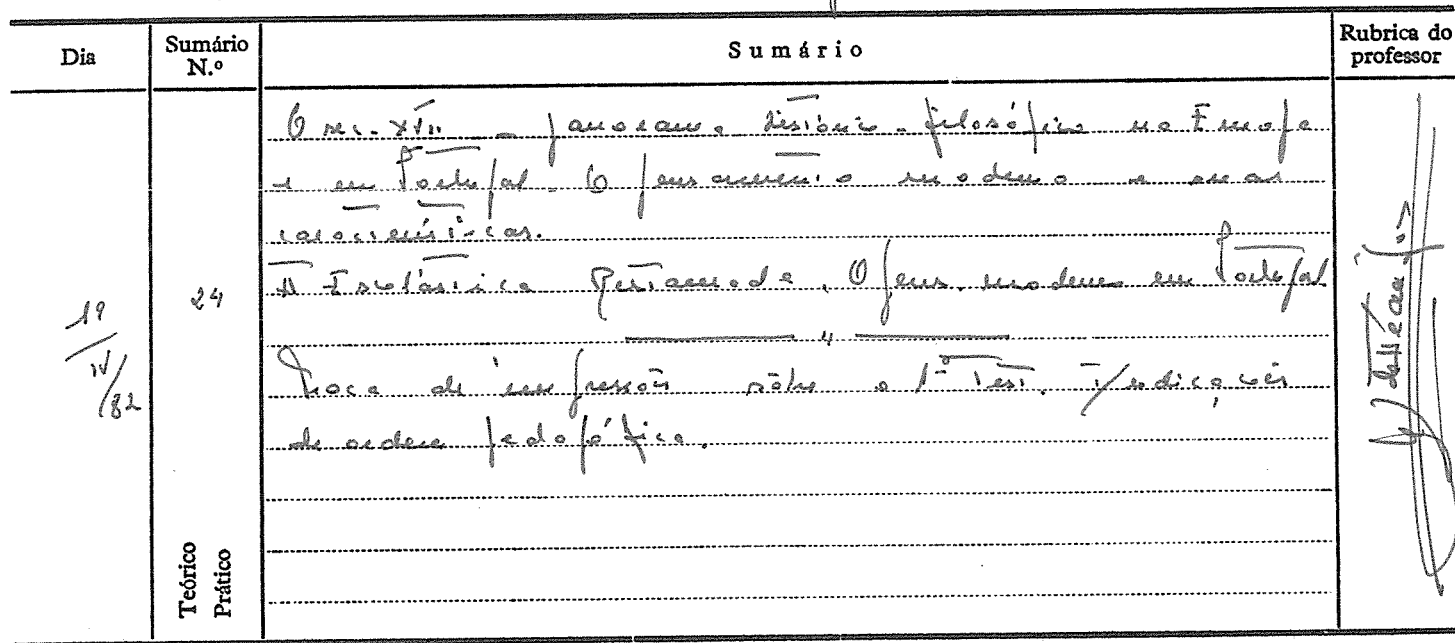 Dia
Sumário N.º
Sumário
Rubrica do professor
19/IV/82
24
Teórico
Prático
O séc. XVII - panorama histórico-filosófico na Europa
e em Portugal. O pensamento moderno e suas
características.
A Escolástica O pens. moderno em Portugal
"
Troca de impressões sôbre o 1º Test. Indicações
de ordem pedagógica.